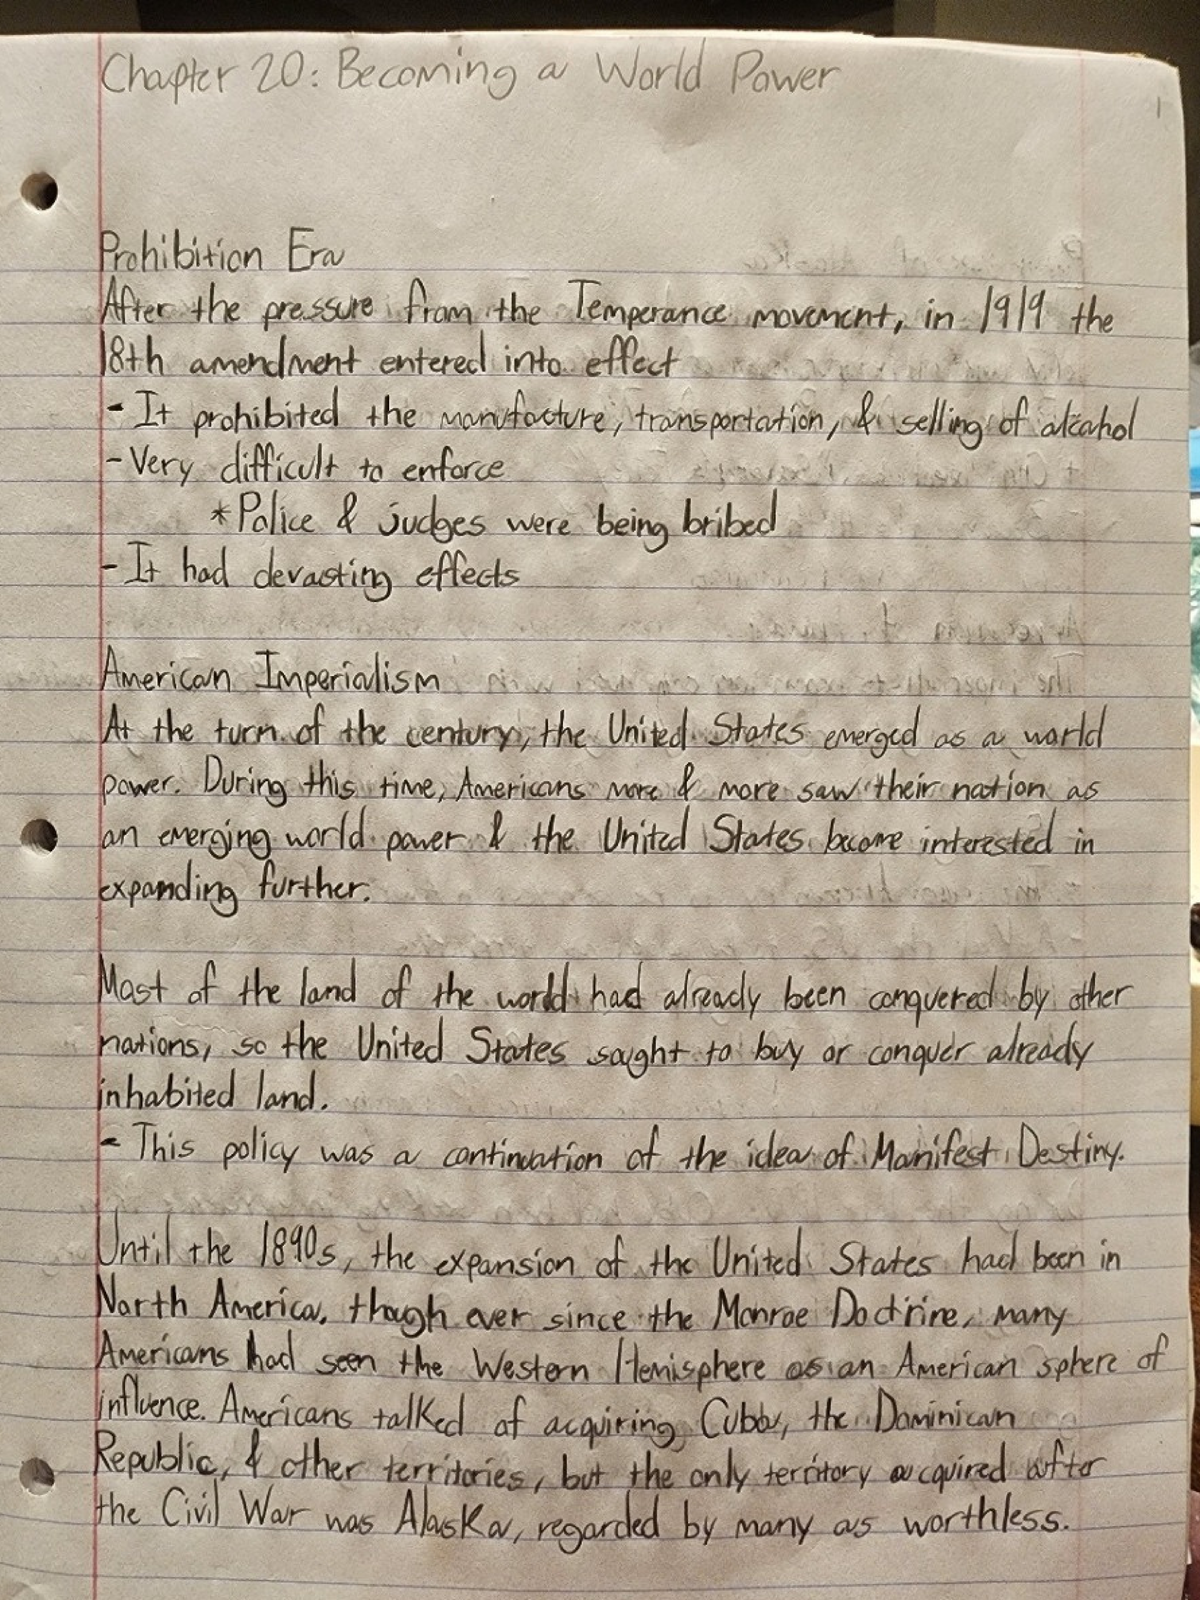 Chapter 20: Becoming a World Power
1
Prohibition Era
After the pressure from the Temperance movement, in 1919 the
18th amendment entered into effect
- It prohibited the manufacture, transportation, & selling of alcahol
- Very difficult to enforce
* Police & judges were being bribed
- It had devasting effects
American Imperialism
At the turn of the century, the United States emerged as a world
power. During this time, Americans more & more saw their nation as
an emerging world power & the United States became interested in
expanding further.
Most of the land of the world had already been conquered by other
nations, so the United States sought to buy or conquer already
inhabited land.
- This policy was a continuation of the idea of Manifest Destiny.
Until the 1890s, the expansion of the United States had been in
North America, though ever since the Monroe Doctrine, many
Americans had seen the Western Hemisphere as an American sphere of
influence. Americans talked of acquiring Cubba, the Dominican
Republic, & other territories, but the only territory acquired after
the Civil War was Alaska, regarded by many as worthless.